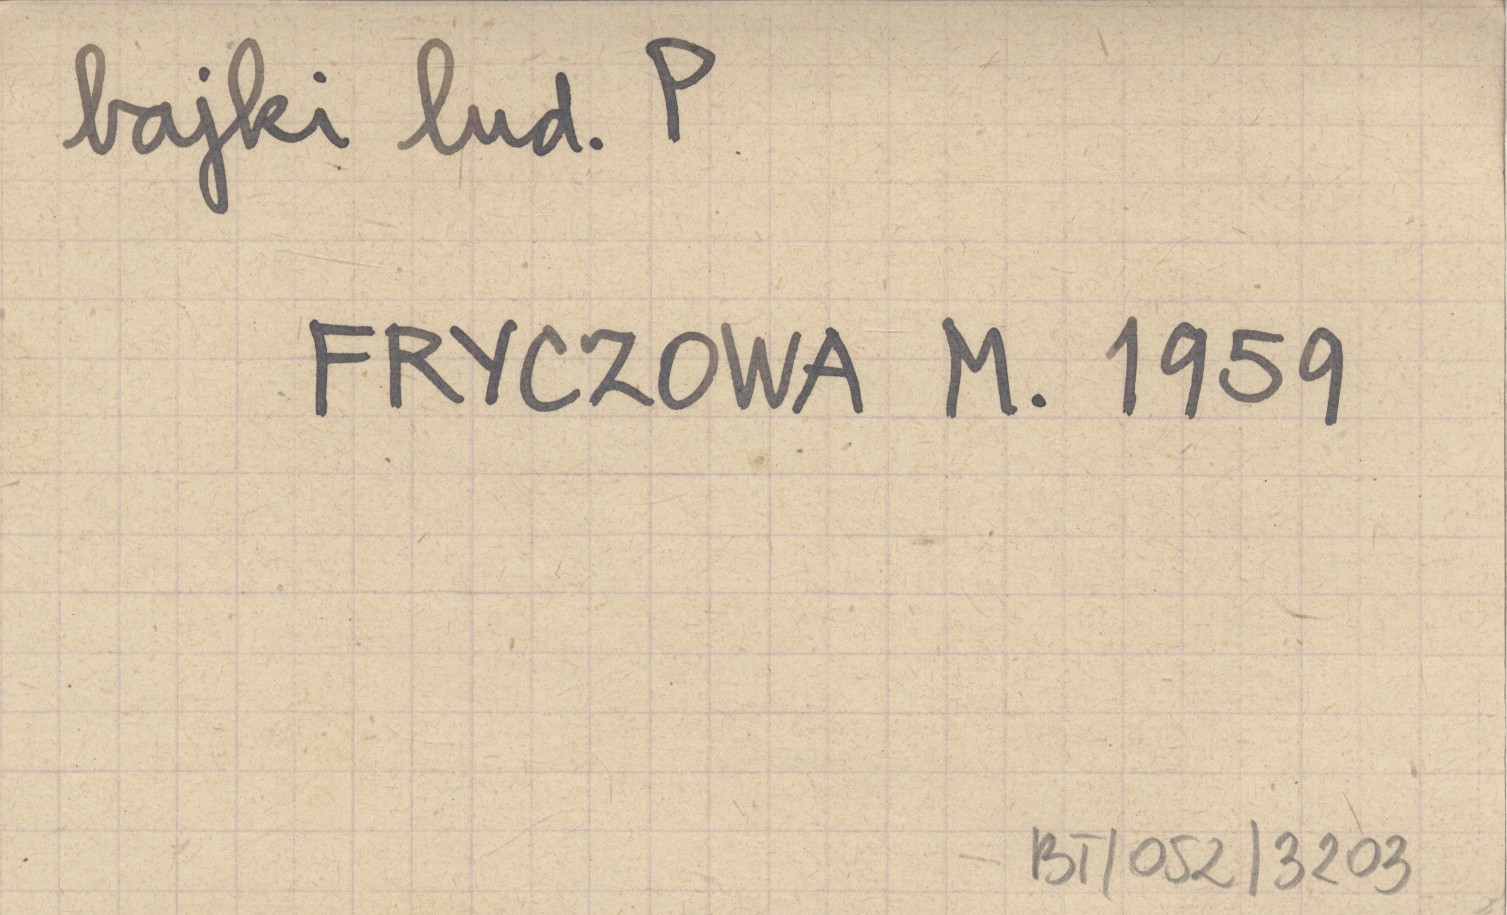 bajki lud. P
FRYCZOWA M. 1959
BT/052/3203